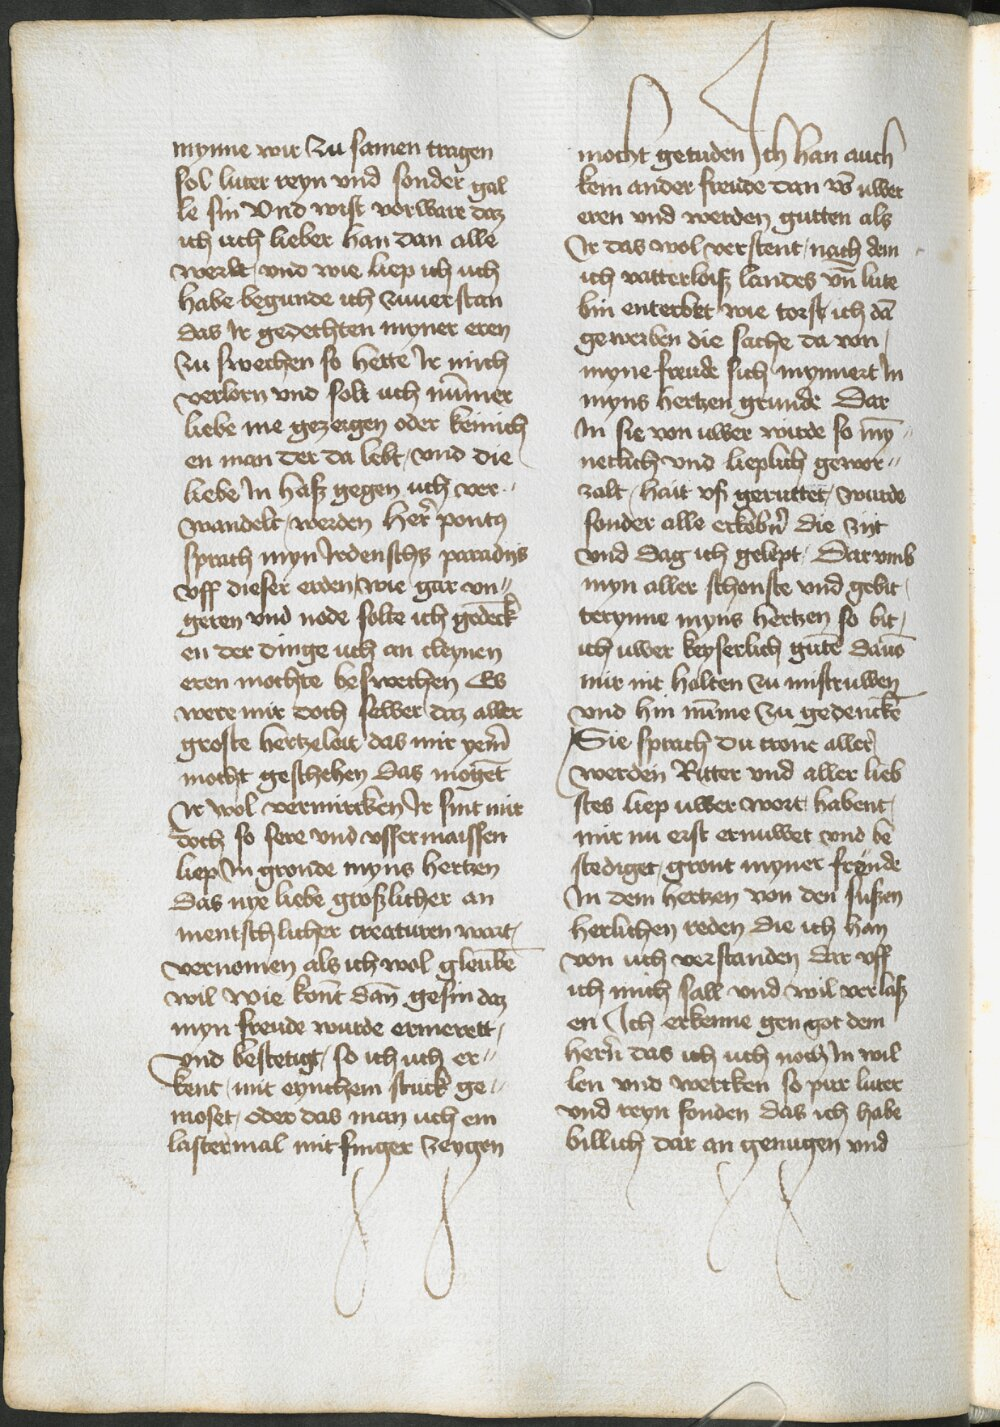 mynne wir zu samen tragen
sol luter reyn vnd sonder gal
le sin vnd wist vorware daz
ich uch lieber han dan alle
werlt / vnd wie liep ich uch
habe begunde ich zuuerstan
das Ir gedechten myner eren
zu swechen so hette Ir mich
verlorn vnd solt uch nūmer
liebe me gezeigen oder keinich
en man der da lebt / vnd die
liebe In haß gegen uch ver〃
wandelt / werden Her̄ pontus
sprach myn Irdenschs paradijs
vff dieser erden / wie gar vn〃
geren vnd node solte ich gedēck
en der dinge uch an cleynen
eren mochte beswechen Es
were mir doch selber daz aller
groste hertzeleit / das mir yem̄
mocht geschehen das mogēt
Ir wol vermircken Ir sint mir
doch so sere vnd vssermaissen
liep In gronde myns hertzen
das nye liebe groszlicher an
mentschlicher creaturen wart /
vernomen als ich wol gleubē
wil wie kont dan̄ gesin daz
myn freude wurde ermerett /
vnd bestetigt / so ich uch er〃
kent / mit eynchem stuck ge〃
moset / oder das man uch ein
lastermal mit finger zeygen
mocht getuden Ich han auch
kein ander freude dan vō uwer
eren vnd werden gutten als
Ir das wol verstent / nach dem
ich vatterloiß landes vn̄ lute
bin enterbet / wie torst ich dā
gewerben die sache da von /
myne freude sich mynnert In
myns hertzen grunde Dar
In sie von uwer wirde so my̅〃
neclich vnd lieplich gewor〃
zalt / hait vß geruttet / wurde
sonder alle erkobn̄ die zijt
vnd dag ich gelept / Dar vmb
myn aller schonste vnd gebit /
terynne myns hertzen so bit /
ich uwer keyserlich gutē dauō
mir nit halten zu mistruwen
vnd hin nūme zu gedenckē
Sie sprach Du crone aller
werden Ritter vnd aller lieb
stes liep uwer wort / habent /
mir nu erst ernuwet vnd be
stediget / gront myner freude
In dem hertzen von den sußen
herlichen reden die ich han
von uch verstanden Dar vff
ich mich sall vnd wil verlaß
en Ich erkenne gen got dem
hern̄ das ich uch noch In wil
len vnd wercken so pur luter
vnd reyn fonden das ich habe
billich dar an genugen vnd